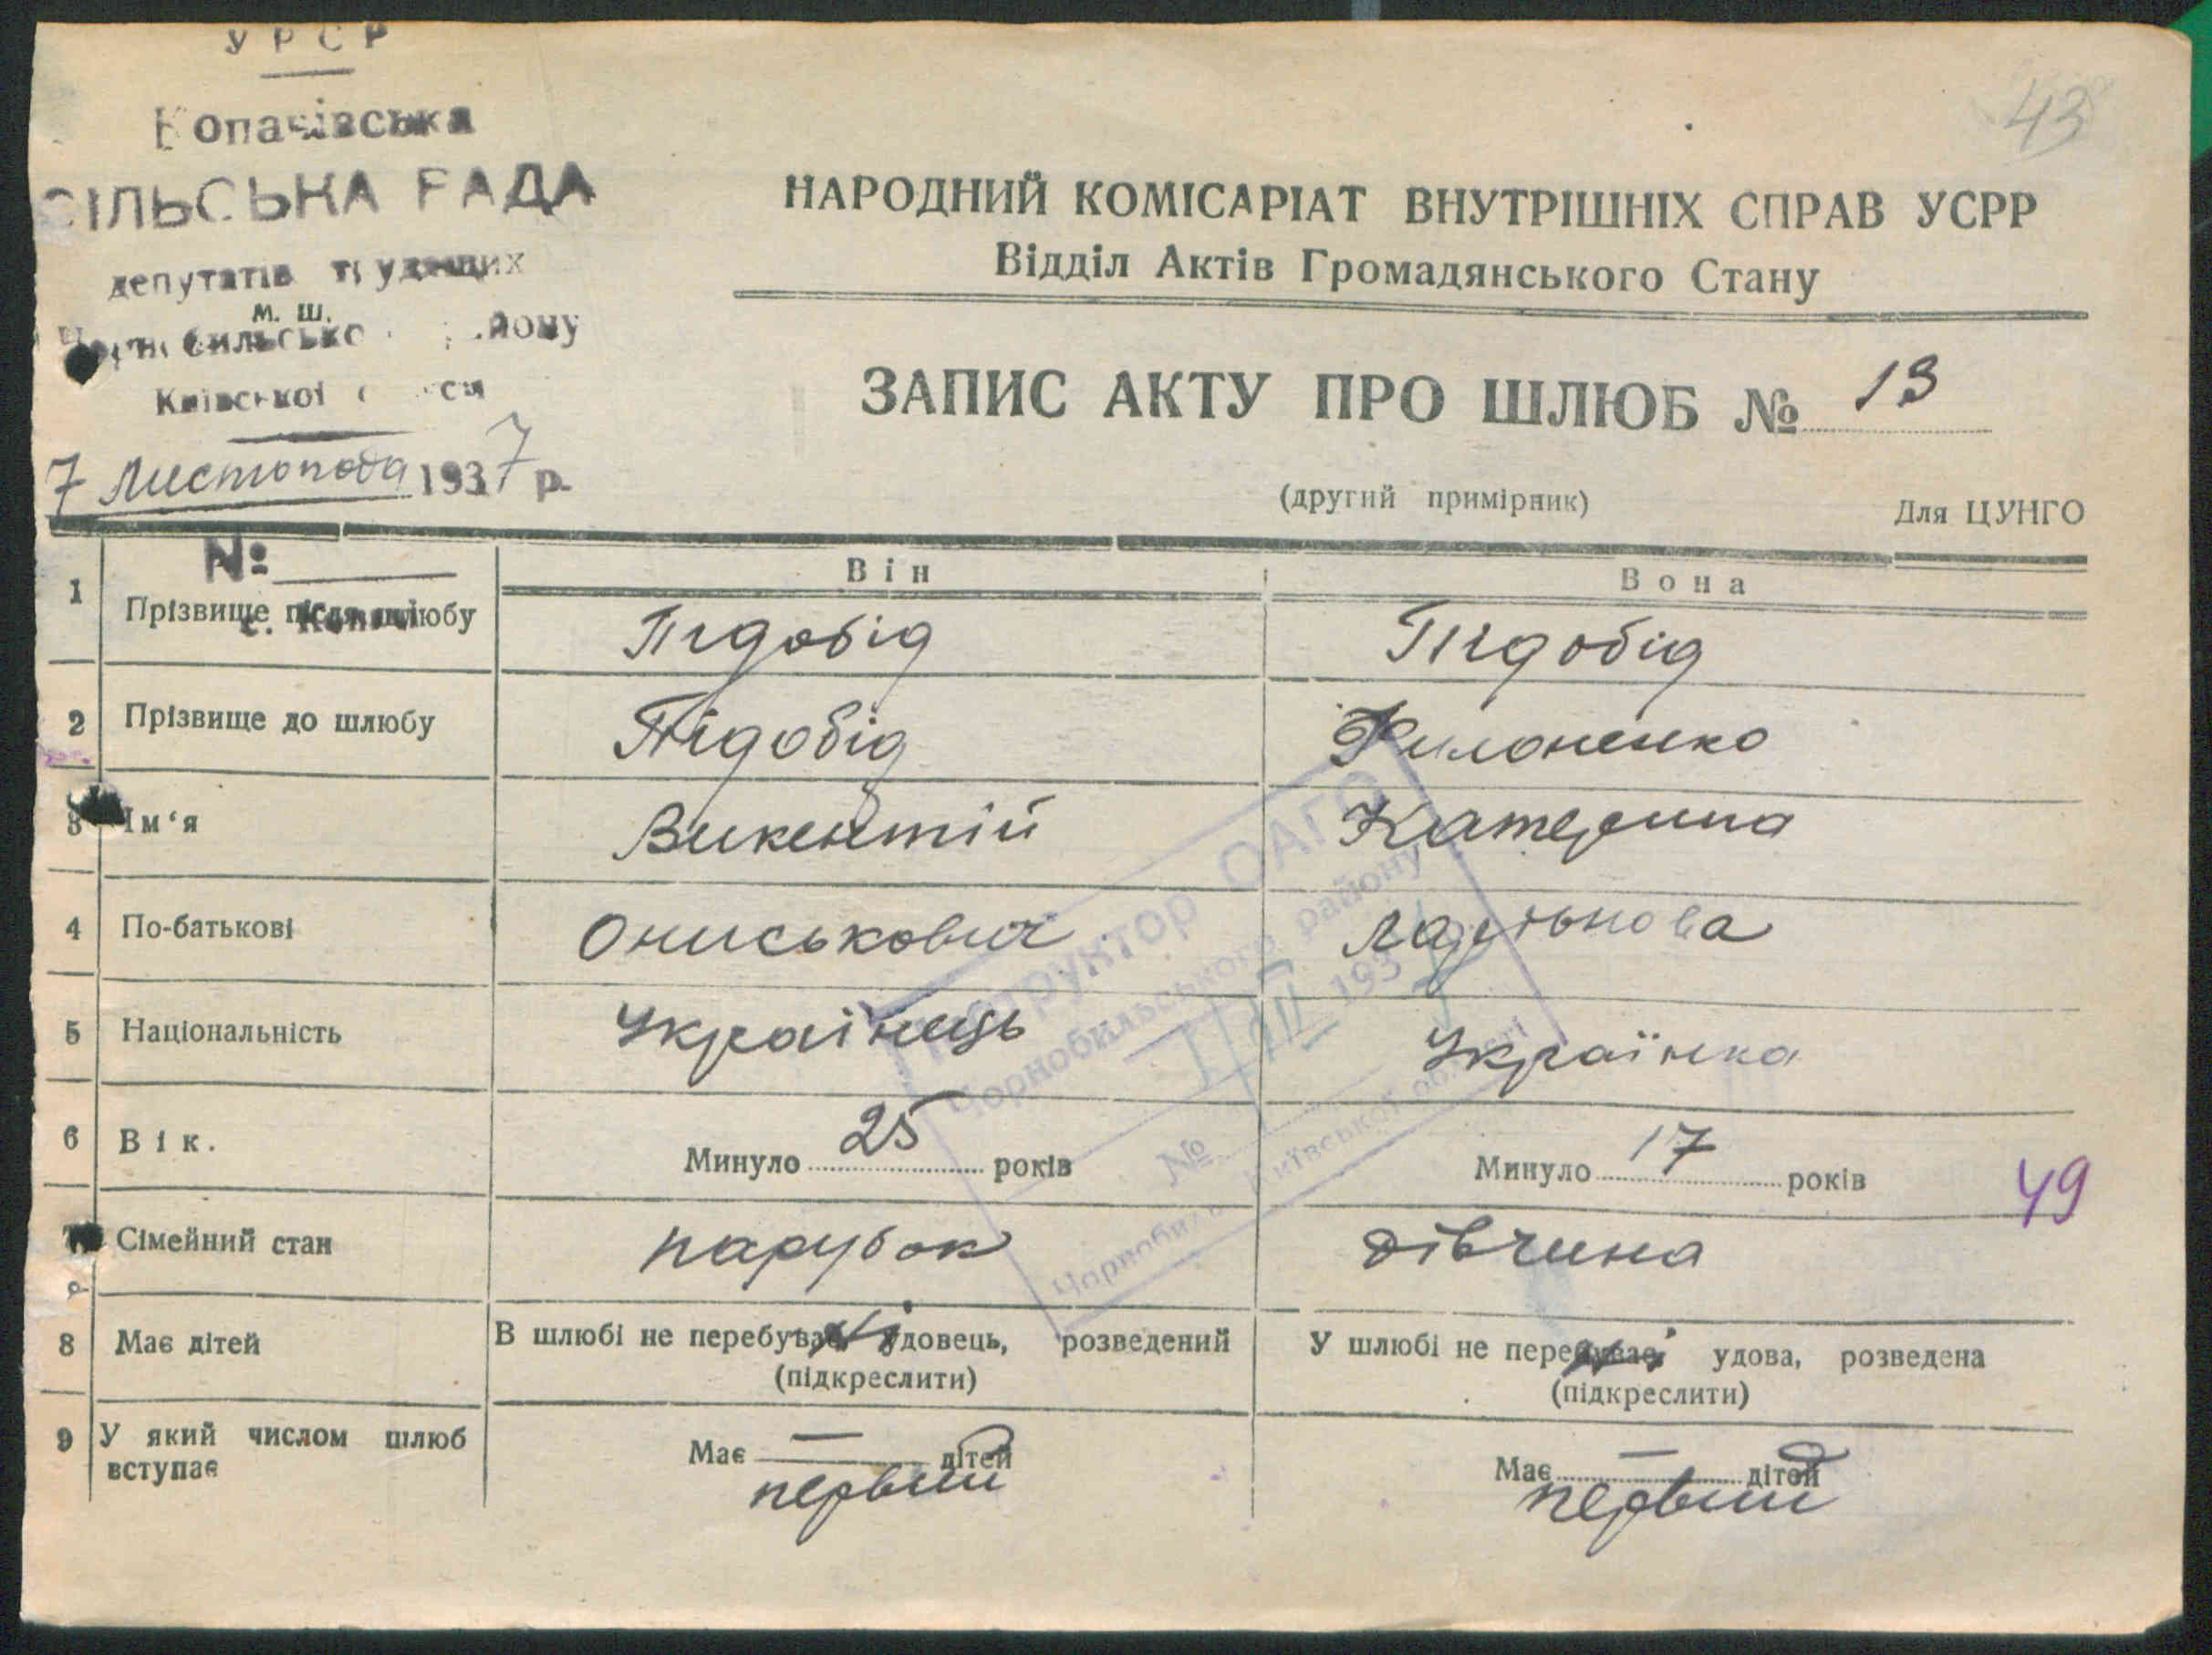 УРСР
Копачівська
СІЛЬСЬКА РАДА
депутатів трудящих
м. ш.
Чорнобильсько району
Київської
7 Листопада 1937 р.
№
с. Копачі
43
НАРОДНИЙ КОМІСАРІАТ ВНУТРІШНІХ СПРАВ УСРР
Відділ Актів Громадянського Стану
ЗАПИС АКТУ ПРО ШЛЮБ № 13
(другий примірник) Для ЦУНГО
Він Вона
1 Прізвище після шлюбу Підобід Підобід
2 Прізвище до шлюбу Підобід Филоненко
3 Ім‘я Викентій Катерина
4 По-батькові Ониськович
5 Національність Українець Українка
6 Вік. Минуло 25 років Минуло 17 років
49
7 Сімейний стан парубок дівчина
8 Має дітей В шлюбі не перебуває, удовець, розведений У шлюбі не перебуває, удова, розведена
(підкреслити) (підкреслити)
9 У який числом шлюб вступає Має — дітей Має — дітей
первий первий
Інструктор ОАГС
Чорнобильського району
193
№
Чорнобиль Київської області